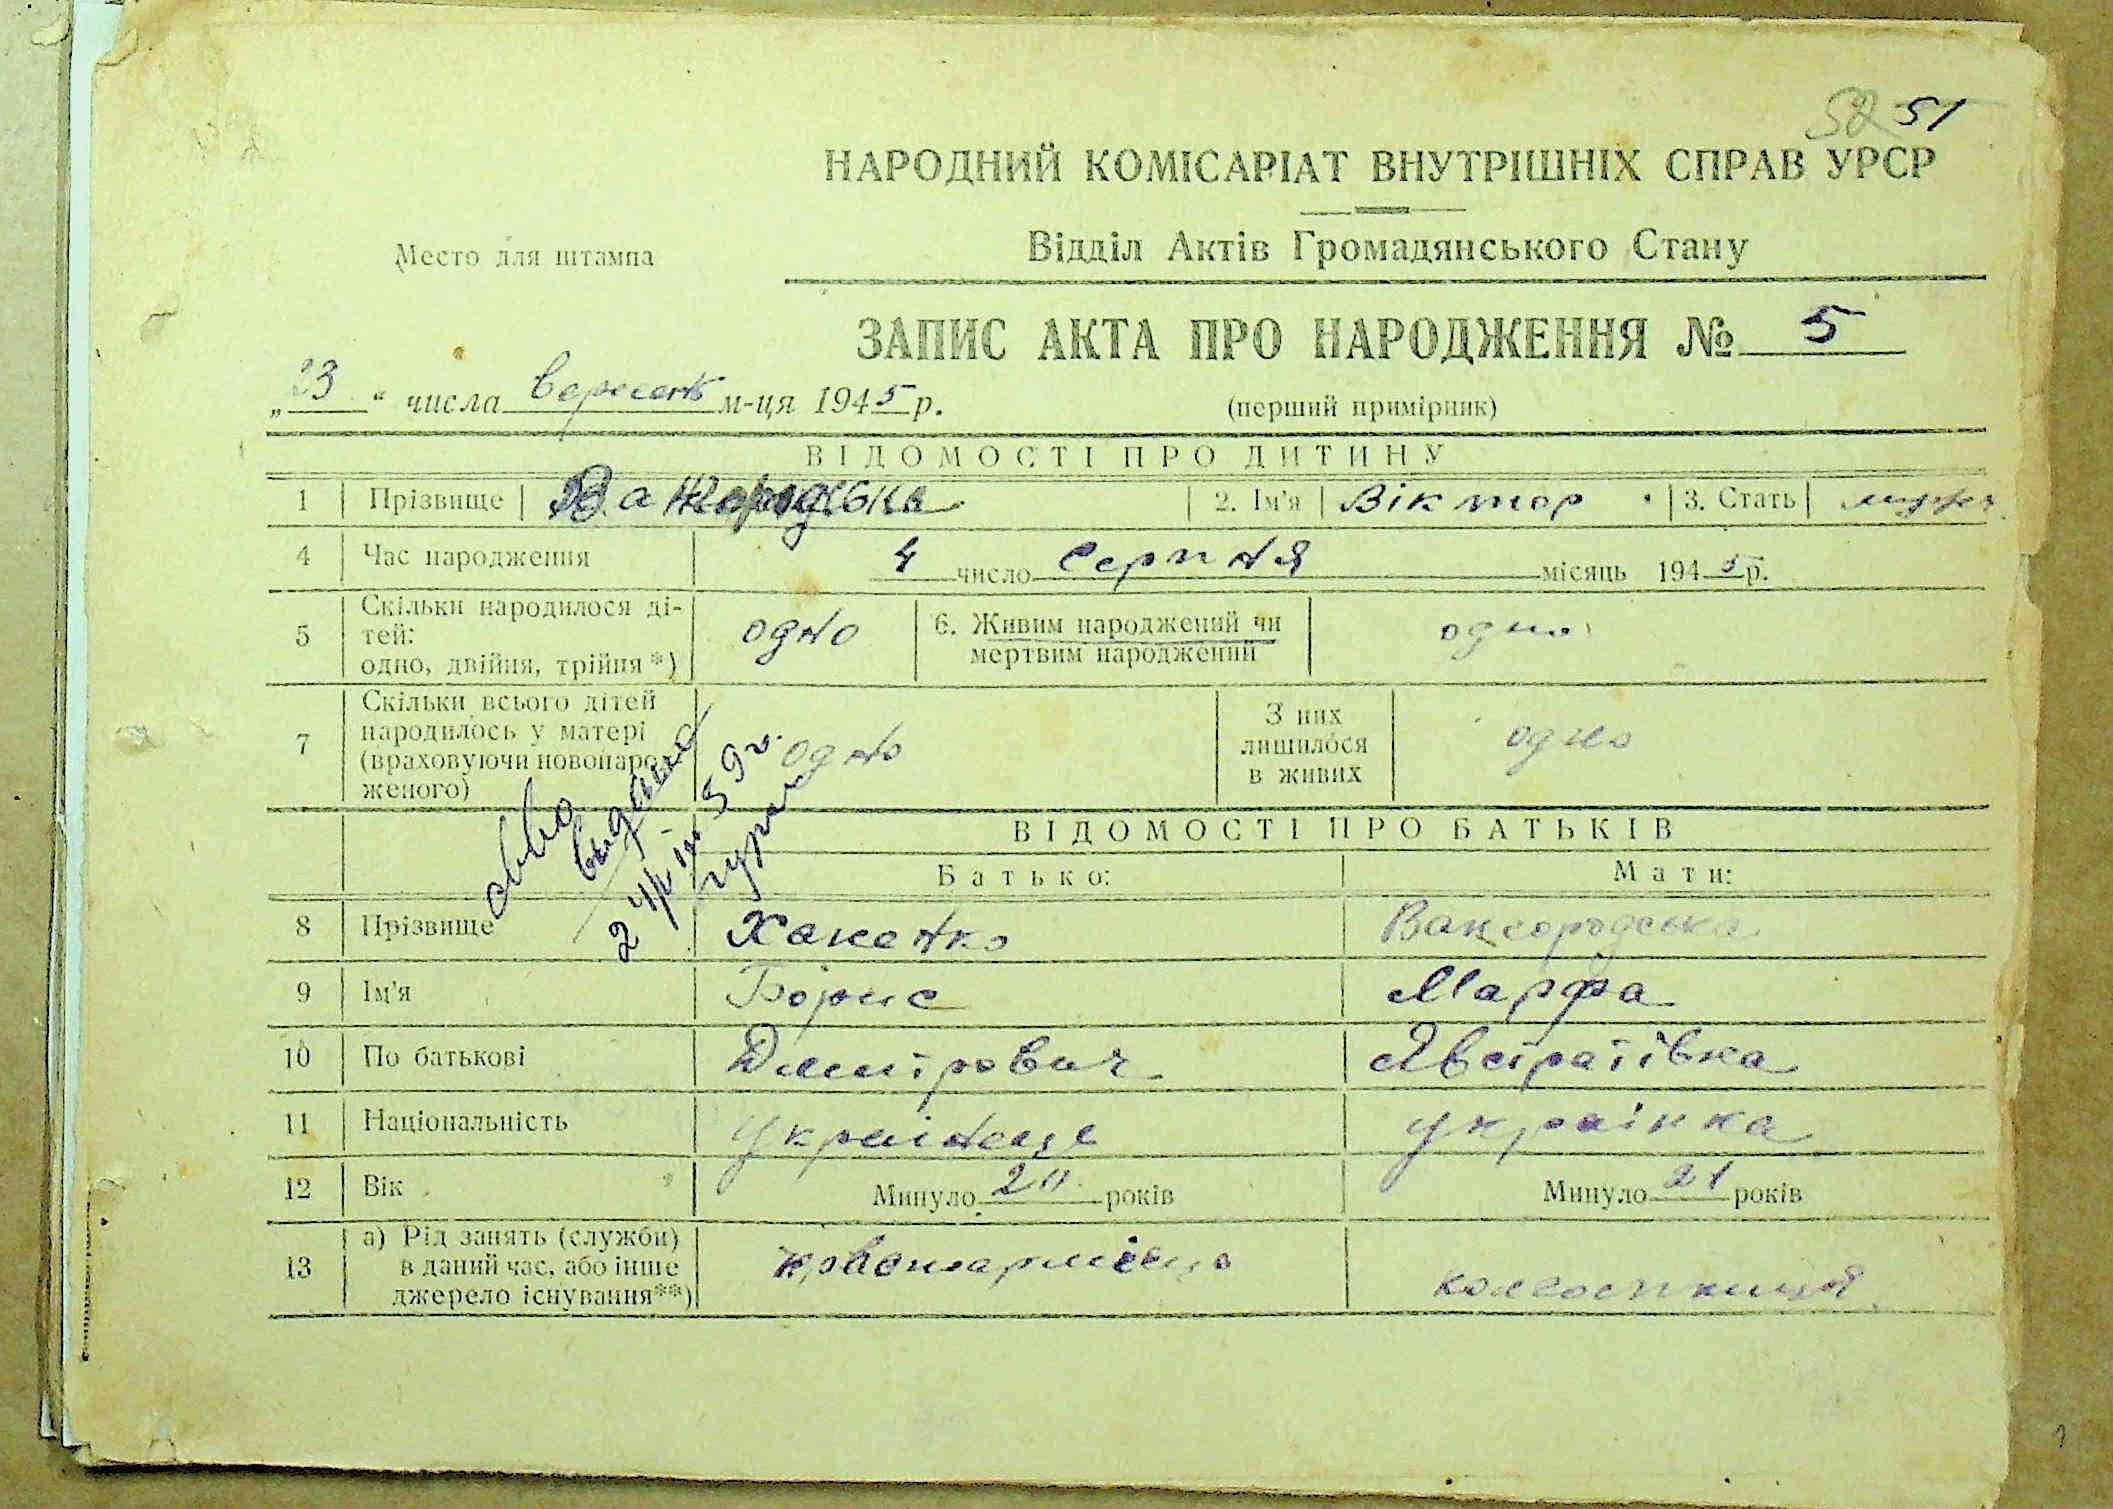 52 51
НАРОДНИЙ КОМІСАРІАТ ВНУТРІШНІХ СПРАВ УРСР
Место для штампа
Відділ Актів Громадянського Стану
ЗАПИС АКТА ПРО НАРОДЖЕННЯ № 5
„23“ числа вересень м-ця 1945 р.
(перший примірник)
ВІДОМОСТІ ПРО ДИТИНУ
1 Прізвище 2. Ім'я Віктор 3. Стать
4 Час народження 4 число серпня місяць 1945 р.
5 Скільки народилося ді-
тей:
одно, двійня, трійня*) одно 6. Живим народжений чи
мертвим народжений одно
7 Скільки всього дітей
народилось у матері
(враховуючи новонаро-
женого) одно З них
лишилося
в живих одно
выдано
ВІДОМОСТІ ПРО БАТЬКІВ
Батько: Мати:
8 Прізвище
9 Ім'я Борис Марфа
10 По батькові Дмитрович
11 Національність українець українка
12 Вік Минуло 20 років Минуло 21 років
13 а) Рід занять (служби)
в даний час, або інше
джерело існування**) колгоспниця